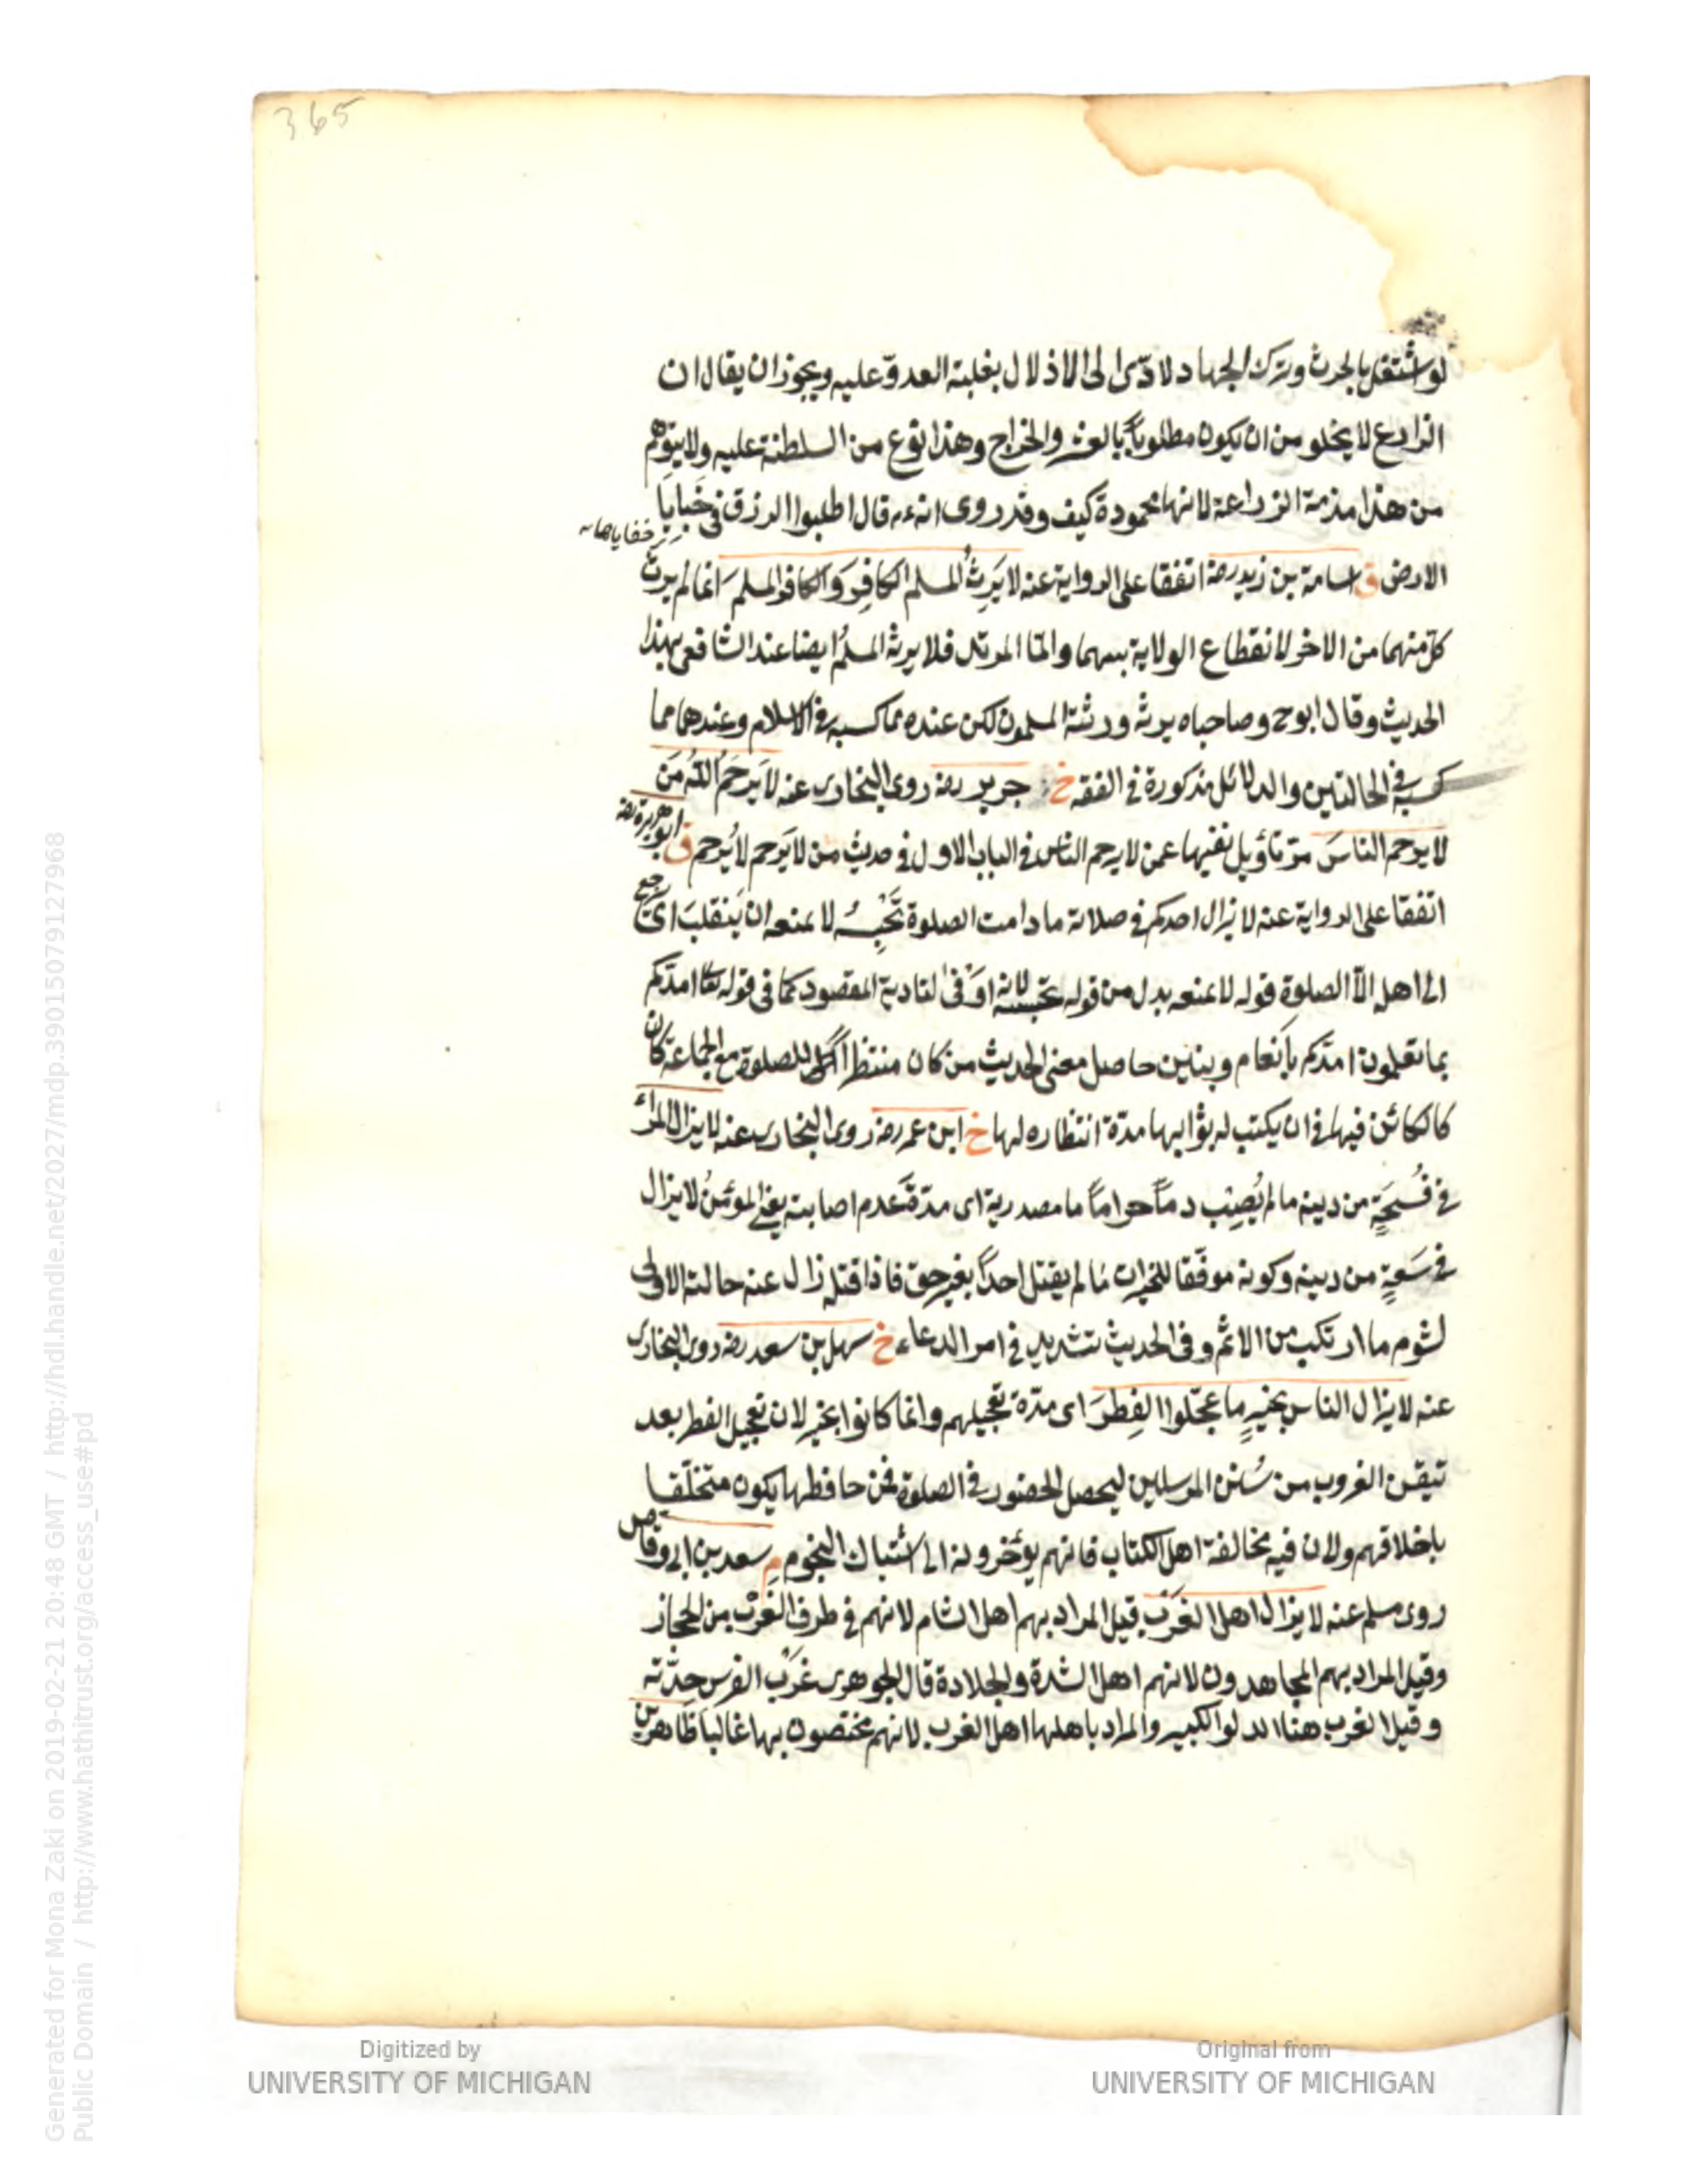 365
لو اشتغل بالحرث وترك الجهاد لادّى الى الاذلال بغلبة العدوّ عليه ويجوز ان يقال ان
الزارع لا يخلو من ان يكون مطلوباً بالعشر والخراج وهذا نوع من السلطنة عليه ولا يتوهّم
من هذا مذمة الزراعة لانها محمودة كيف وقد روى انه ءم قال اطلبوا الرزق فى خَبايَا
خفاياها
الارض ق اسامة بن زيد رضه اتفقا على الرواية عنه لا يَرِثُ المسلم الكافِرَ وَالكافر المسلمَ انما لم يرث
كلّ منهما من الاخر لانقطاع الولاية بينهما وامّا المرتد فلا يرثه المسلمُ ايضا عند الشافعى بهذا
الحديث وقال ابو ح وصاحباه يرثه ورثته المسلمون لكن عنده مما كسبه فى الاسلام وعندهما مما
كسبه فى الحالتين والدلائل مذكورة فى الفقه خ جرير رضه روى البخارى عنه لا يَرحَمُ اللّهُ مَن
لا يرحم الناسَ مرّ تاويل نفيها عمن لا يرحم الناس فى الباب الاول فى حديث من لا يَرحم لا يُرحم ق ابو هريرة رضه
اتفقا على الرواية عنه لا يزال احدكم فى صلاته ما دامت الصلوة تَحْبِسُهُ لا يمنعه ان يَنقلبَ اى يرجع
الى اهله الّا الصلوة قوله لا يمنعه بدل من قوله تحبسه لانه اوْفَى لتادية المقصود كما فى قوله تعا امدّكم
بما تعلمون امدّكم بأنعام وبنين حاصل معنى الحديث من كان منتظرا للصلوة مع الجماعة كان
كالكائن فيها فى ان يكتب له ثوابها مدة انتظاره لها خ ابن عمر رضه روى البخارى عنه لا يزال المرأ
فى فُسْحَةٍ من دينه ما لم يُصِب دماً حراماً ما مصدرية اى مدّة عدم اصابته يعنى المؤمنُ لا يزال
فى سَعةٍ من دينه وكونه موفّقا للخيرات ما لم يقتل احداً بغير حق فاذا قتله زال عنه حالته الاولى
لشوم ما ارتكب من الاثم وفى الحديث تشديد فى امر الدماء خ سهل بن سعد رضه روى البخارى
عنه لا يزال الناس بخيرٍ ما عجّلوا الفِطرَ اى مدّة تعجيلهم وانما كانوا بخير لان تعجيل الفطر بعد
تيقن الغروب من سُنن المرسلين ليحصل الحضور فى الصلوة فمن حافظها يكون متخلّقا
باخلاقهم ولان فيه مخالفة اهل الكتاب فانهم يؤخرونه الى اشتباك النجوم م سعد بن ابى وقاص
روى مسلم عنه لا يزال اهل الغَرْب قيل المراد بهم اهل الشام لانهم فى طرف الغرْب من الحجاز
وقيل المراد بهم المجاهدون لانهم اهل الشدة والجلادة قال الجوهرى غَرْب الفرس حِدّته
وقيل الغرب هنا الدلو الكبير والمراد باهلها اهل الغرب لانهم مختصون بها غالبا ظاهرين
Digitized by
UNIVERSITY OF MICHIGAN
Original from
UNIVERSITY OF MICHIGAN
Generated for Mona Zaki on 2019-02-21 20:48 GMT / http://hdl.handle.net/2027/mdp.39015079127968
Public Domain / http://www.hathitrust.org/access_use#pd